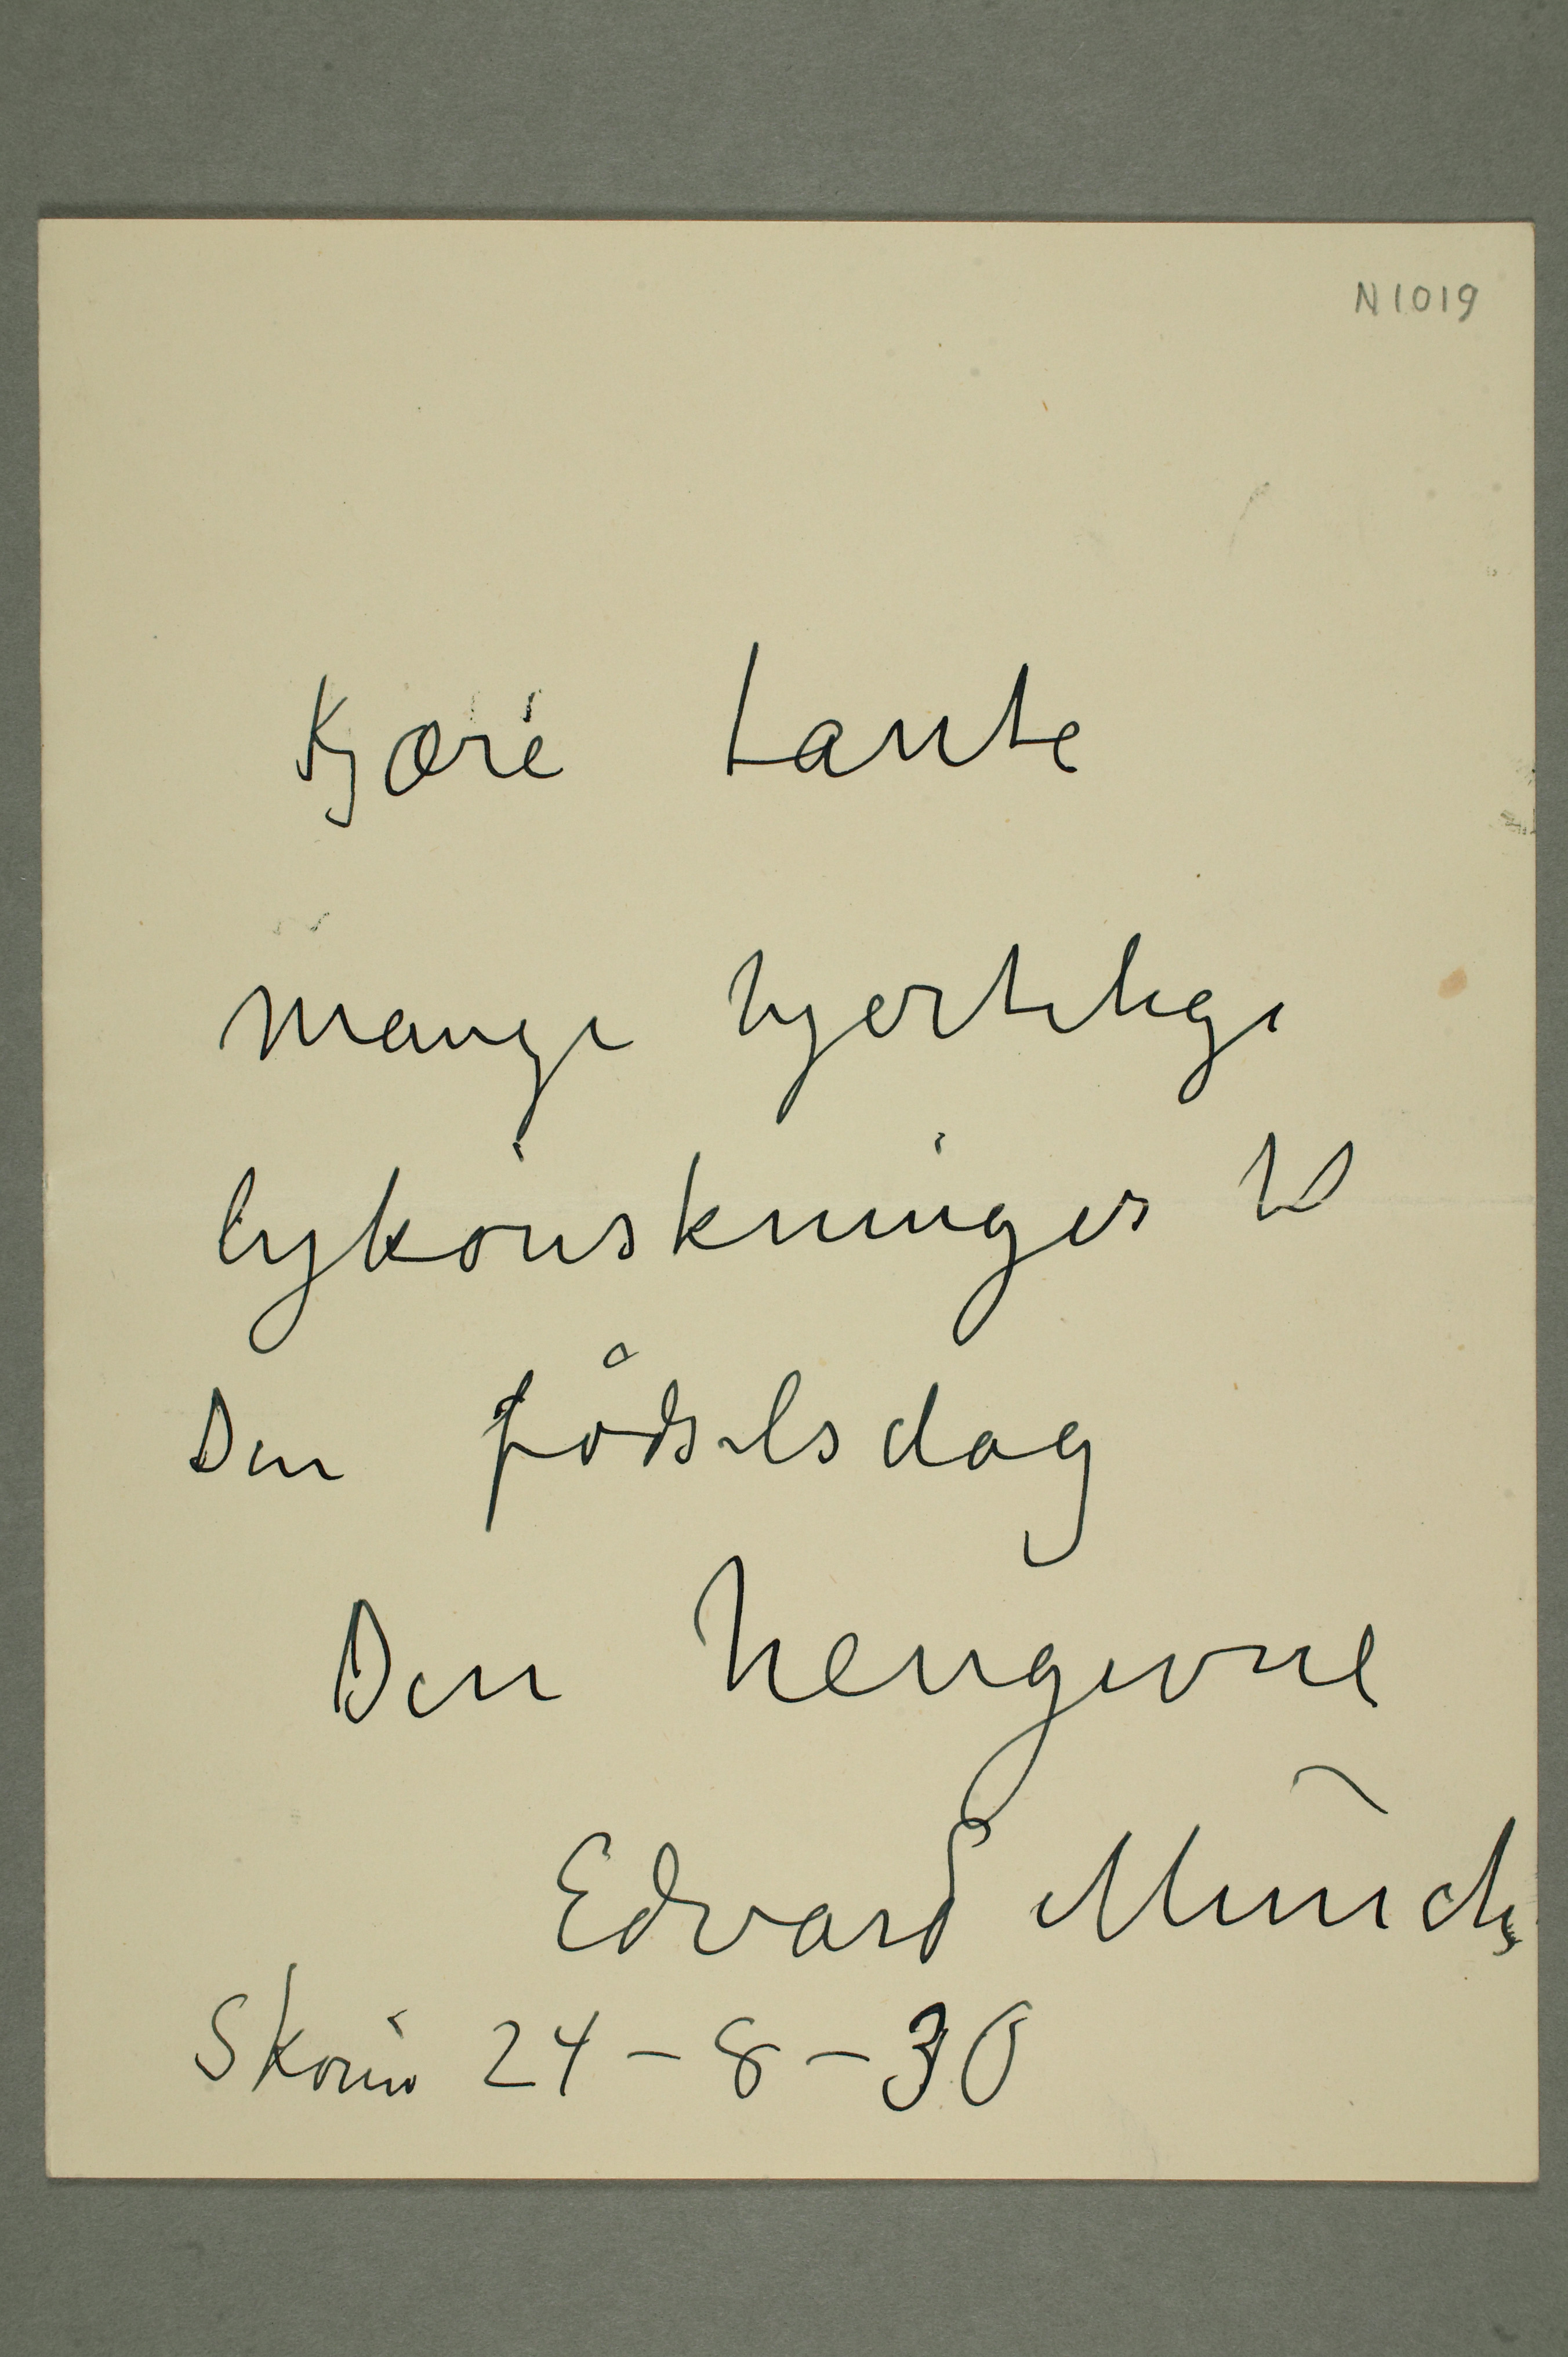 N 1019
Kjære tante
Mange hjertelige
lykønskninger til
Din fødselsdag
Din hengivne
Edvard Munch
Skøien 24 – 8 – 30